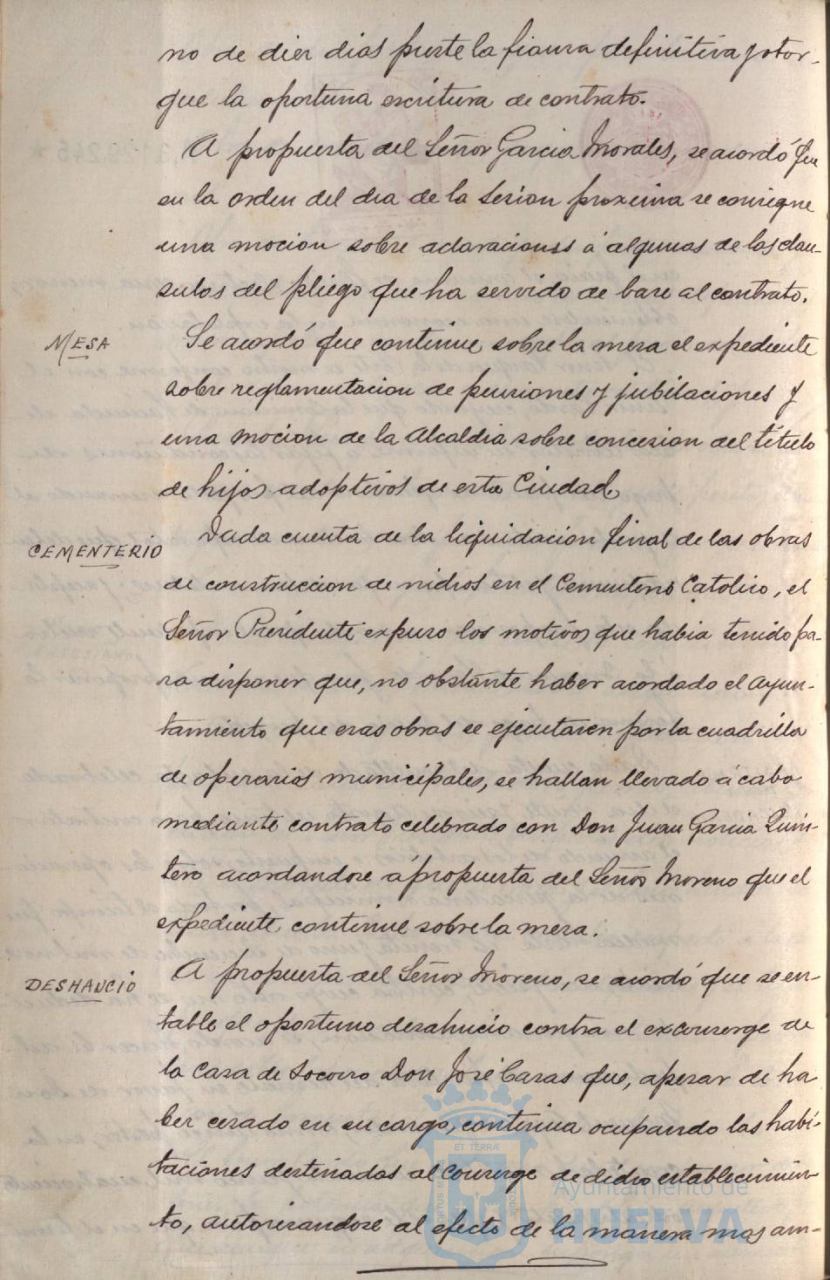 no de diez dias preste la fianza definitiva y otor-
gue la oportuna escritura de contrato.
A propuesta del Señor Garcia Morales, se acordó que
en la orden del dia de la Sesion proxima se consigne
una mocion sobre aclaraciones á algunas de las clau-
sulas del pliego que ha servido de base al contrato.
MESA
Se acordó que continue sobre la mesa el expediente
sobre reglamentacion de pensiones y jubilaciones y
una mocion de la Alcaldia sobre concesion del título
de hijos adoptivos de esta Ciudad,
CEMENTERIO
Dada cuenta de la liquidacion final de las obras
de construccion de nidros en el Cementerio Católico, el
Señor Presidente expuso los motivos que habia tenido pa-
ra disponer que, no obstante haber acordado el Ayun-
tamiento que esas obras se ejecutasen por la cuadrilla
de operarios municipales, se hallan llevado á cabo
mediante contrato celebrado con Don Juan Garcia Quin-
tero acordandose á propuesta del Señor Moreno que el
expediente continue sobre la mesa.
DESHAUCIO
A propuesta del Señor Moreno, se acordó que se en-
table el oportuno desahucio contra el exconserge de
la Casa de Socorro Don José Casas que, apesar de ha
ber cesado en su cargo, continua ocupando las habi-
taciones destinadas al conserge de dicho establecimien-
to, autorisandose al efecto de la manera mas am-
ET TERRA
Ayuntamiento de
HUELVA